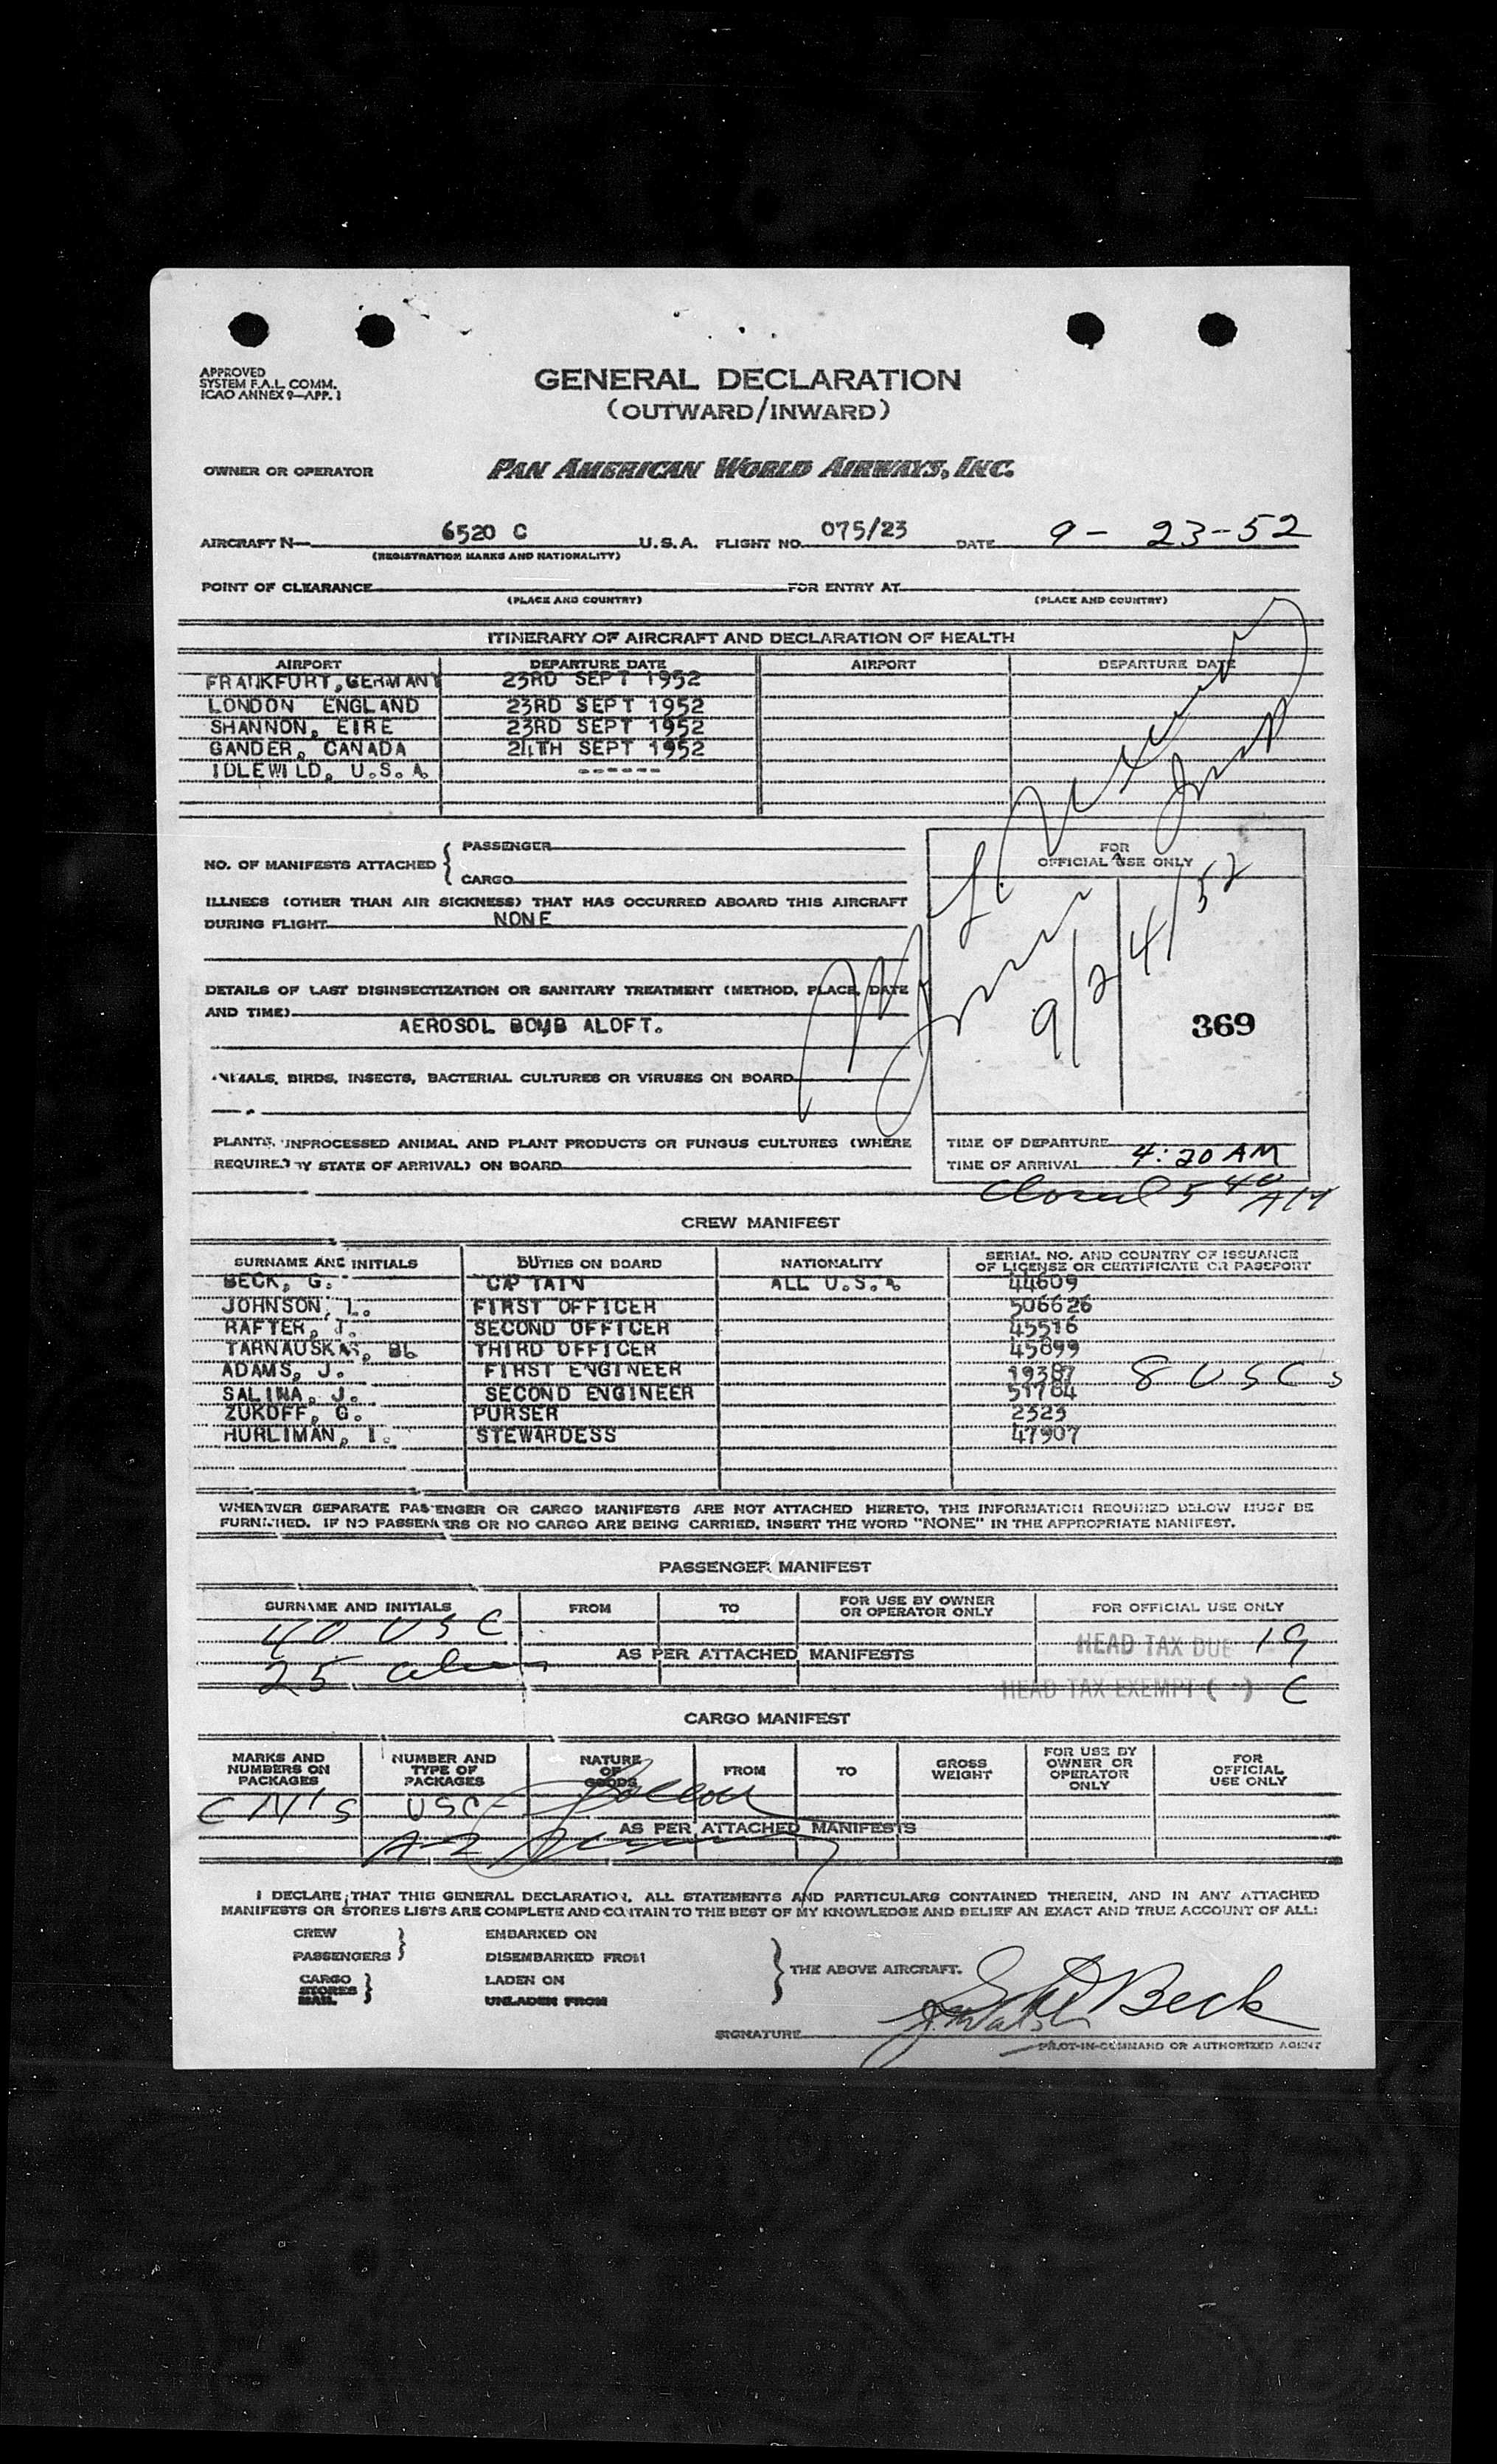 APPROVED
SYSTEM F.A.L. COMM.
ICAO ANNEX 9—APP. 1
GENERAL DECLARATION
(OUTWARD/INWARD)
OWNER OR OPERATOR PAN AMERICAN WORLD AIRWAYS, INC.
AIRCRAFT N— 6520 C U.S.A. FLIGHT NO. 075/23 DATE 9-23-52
(REGISTRATION MARKS AND NATIONALITY)
POINT OF CLEARANCE FOR ENTRY AT
(PLACE AND COUNTRY) (PLACE AND COUNTRY)
ITINERARY OF AIRCRAFT AND DECLARATION OF HEALTH
AIRPORT DEPARTURE DATE AIRPORT DEPARTURE DATE
FRANKFURT, GERMANY 23RD SEPT 1952
LONDON ENGLAND 23RD SEPT 1952
SHANNON, EIRE 23RD SEPT 1952
GANDER, CANADA 24TH SEPT 1952
IDLEWILD, U.S.A. ------
NO. OF MANIFESTS ATTACHED { PASSENGER
CARGO
FOR
OFFICIAL USE ONLY
ILLNESS (OTHER THAN AIR SICKNESS) THAT HAS OCCURRED ABOARD THIS AIRCRAFT
DURING FLIGHT NONE
9/24/52
DETAILS OF LAST DISINSECTIZATION OR SANITARY TREATMENT (METHOD, PLACE, DATE
AND TIME)
AEROSOL BOMB ALOFT.
369
ANIMALS, BIRDS, INSECTS, BACTERIAL CULTURES OR VIRUSES ON BOARD
PLANTS, UNPROCESSED ANIMAL AND PLANT PRODUCTS OR FUNGUS CULTURES (WHERE
REQUIRED BY STATE OF ARRIVAL) ON BOARD
TIME OF DEPARTURE
TIME OF ARRIVAL 4:20 AM
Closed 5 40 AM
CREW MANIFEST
SURNAME AND INITIALS DUTIES ON BOARD NATIONALITY SERIAL NO. AND COUNTRY OF ISSUANCE
OF LICENSE OR CERTIFICATE OR PASSPORT
BECK, G. CAPTAIN ALL U.S.A. 44609
JOHNSON, L. FIRST OFFICER 506626
RAFTER, J. SECOND OFFICER 45516
TARNAUSKAS, B THIRD OFFICER 45899
ADAMS, J. FIRST ENGINEER 19387 8 USCs
SALINA, J. SECOND ENGINEER 51784
ZUKOFF, G. PURSER 2323
HURLIMAN, I. STEWARDESS 47907
WHENEVER SEPARATE PASSENGER OR CARGO MANIFESTS ARE NOT ATTACHED HERETO, THE INFORMATION REQUIRED BELOW MUST BE
FURNISHED. IF NO PASSENGERS OR NO CARGO ARE BEING CARRIED, INSERT THE WORD "NONE" IN THE APPROPRIATE MANIFEST.
PASSENGER MANIFEST
SURNAME AND INITIALS FROM TO FOR USE BY OWNER
OR OPERATOR ONLY FOR OFFICIAL USE ONLY
40 USC
AS PER ATTACHED MANIFESTS HEAD TAX DUE 19
25 alien
HEAD TAX EXEMPT ( ) 6
CARGO MANIFEST
MARKS AND
NUMBERS ON
PACKAGES
NUMBER AND
TYPE OF
PACKAGES
NATURE
OF
GOODS
FROM
TO
GROSS
WEIGHT
FOR USE BY
OWNER OR
OPERATOR
ONLY
FOR
OFFICIAL
USE ONLY
USC-
AS PER ATTACHED MANIFESTS
A-2
I DECLARE THAT THIS GENERAL DECLARATION, ALL STATEMENTS AND PARTICULARS CONTAINED THEREIN, AND IN ANY ATTACHED
MANIFESTS OR STORES LISTS ARE COMPLETE AND CONTAIN TO THE BEST OF MY KNOWLEDGE AND BELIEF AN EXACT AND TRUE ACCOUNT OF ALL:
CREW EMBARKED ON
PASSENGERS } DISEMBARKED FROM
THE ABOVE AIRCRAFT.
CARGO LADEN ON
STORES
MAIL } UNLADEN FROM
Beck
SIGNATURE
PILOT-IN-COMMAND OR AUTHORIZED AGENT